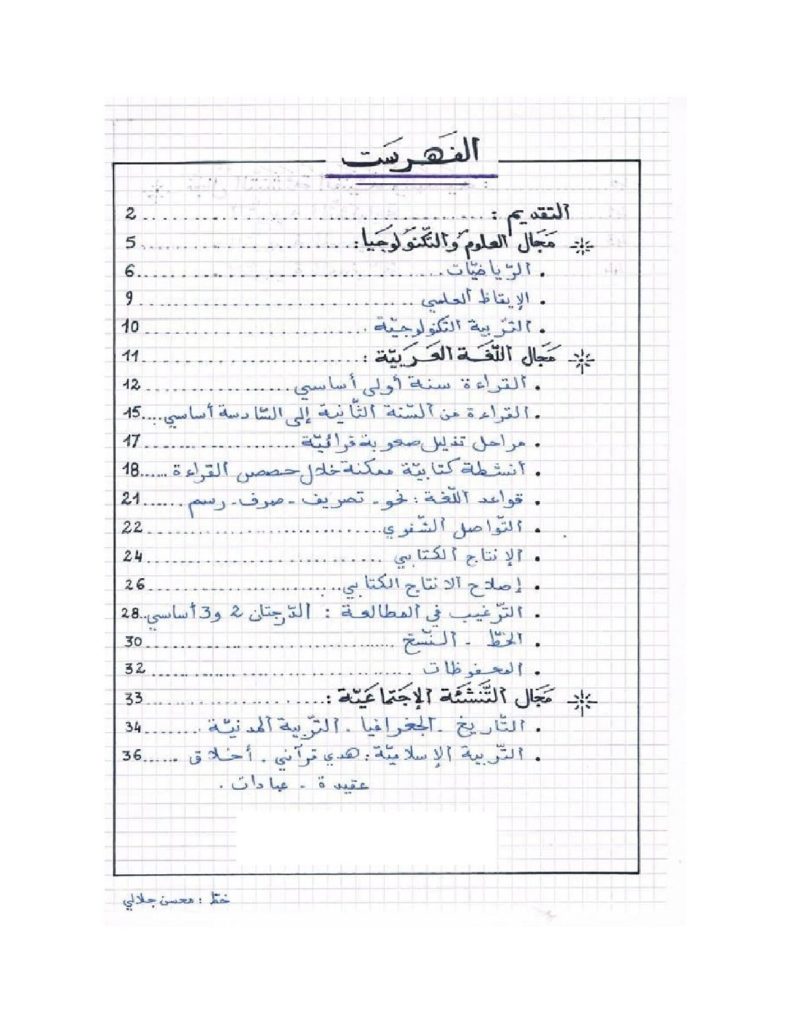 الفَهْرسَت
التقديم : ................................ 2
مَجَال العلوم وَالتّكنُولُوجيَا : .................... 5
. الرّياضيّات ............................ 6
. الإيقاظ العلمي ............................ 9
. التّربية التّكنولوجيّة ........................ 10
مَجَال اللّغَة العَرَبيّة : ........................ 11
. القراءة سنة أولى أساسي ................ 12
. القراءة من السّنة الثّانية إلى السّادسة أساسي .... 15
. مراحل تذليل صعوبة قرائيّة ................ 17
. أنشطة كتابيّة ممكنة خلال حصص القراءة ...... 18
. قواعد اللّغة : نحو - تصريف - صرف - رسم ...... 21
. التّواصل الشّفوي ........................ 22
. الإنتاج الكتابي ........................ 24
. إصلاح الانتاج الكتابي .................... 26
. التّرغيب في المطالعة : الدّرجتان 2 و 3 أساسي .. 28
. الخطّ - النّسخ ........................ 30
. المحفوظات ............................ 32
مَجَال التَّنْشَئَة الإجتمَاعيّة : .................... 33
. التّاريخ - الجغرافيا - التّربية المدنيّة ........ 34
. التّربية الإسلاميّة : هدي قرآني - أخلاق ...... 36
عقيدة - عبادات .
خطّ : محسن جلالي